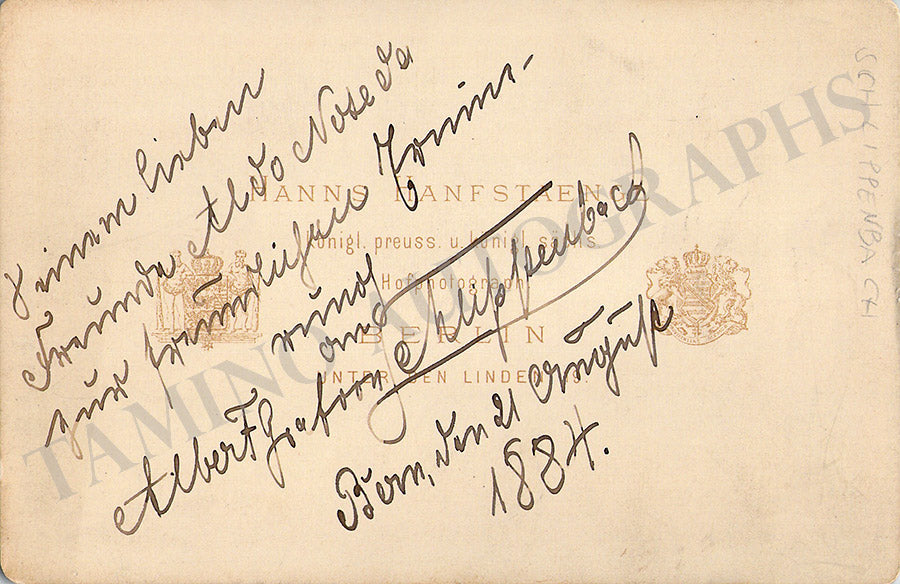 Seinem lieben
Freunde Aldo Noseda
zur freundlichen Erinne-
rung
an
Albert Graf von Schlippenbach
Bern, den 21 August
1884.
HANNS HANFSTAENGL
Königl. preuss. u. königl. sächs.
Hofphotograph.
BERLIN
UNTER DEN LINDEN
SCHLIPPENBACH
TAMINO AUTOGRAPHS